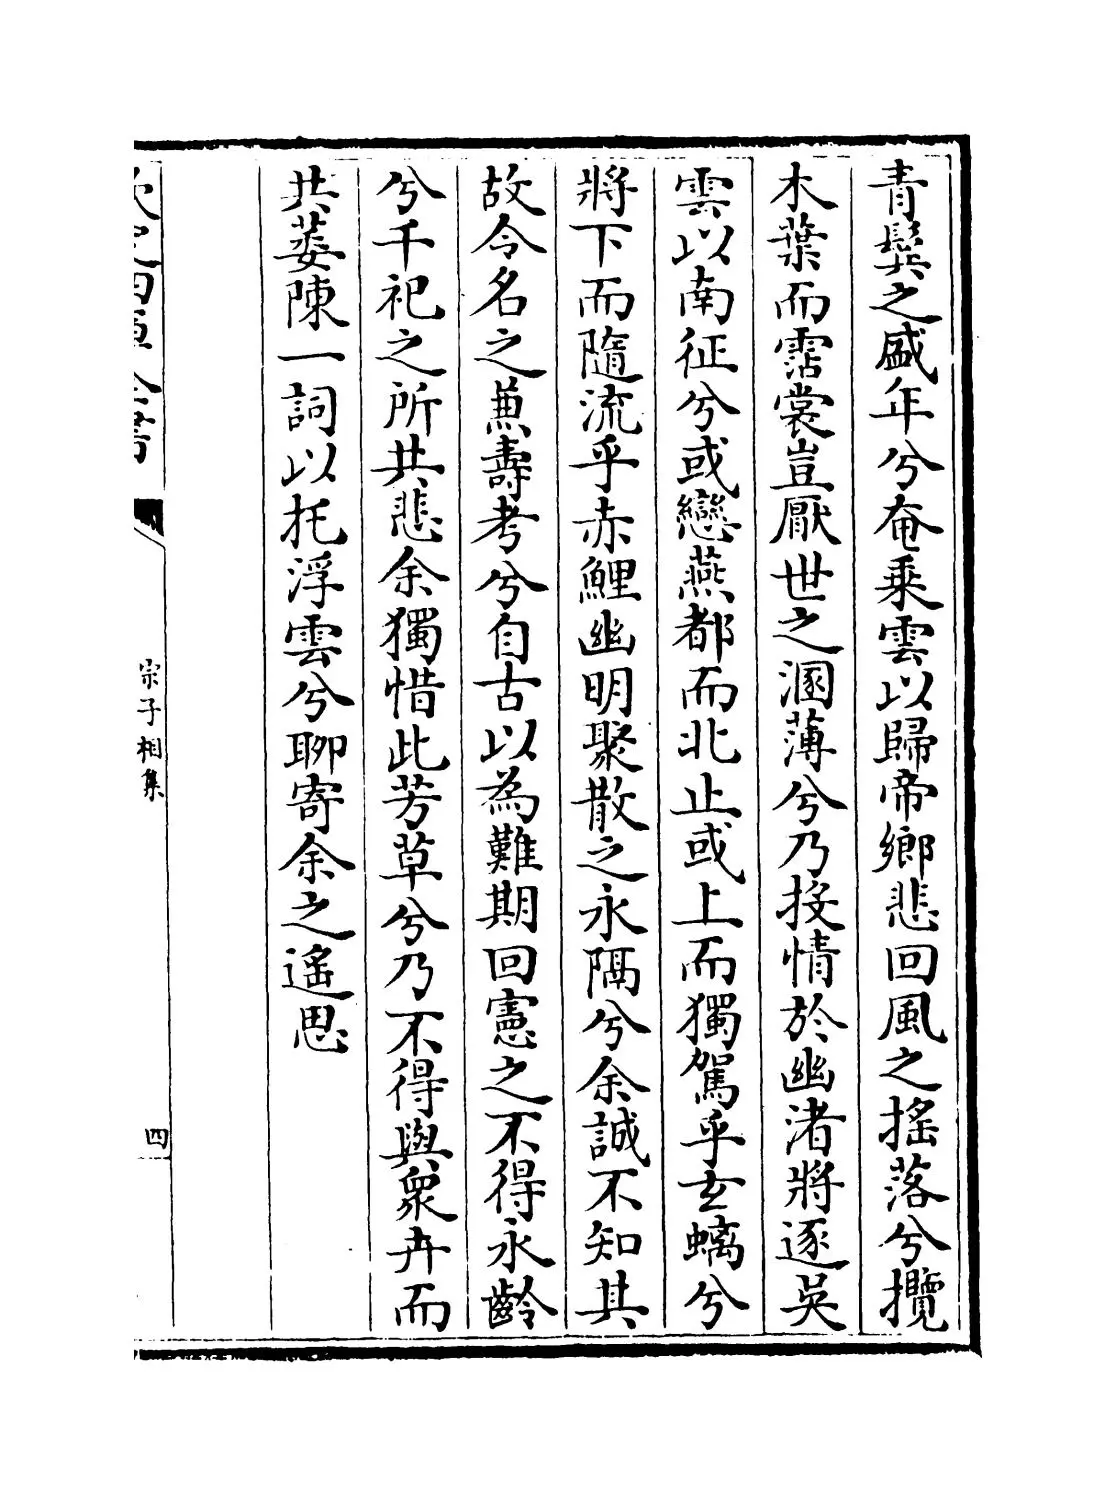 青鬓之盛年兮奄乗雲以歸帝鄉悲回風之摇落兮攬
木葉而霑裳豈厭世之溷薄兮乃投情於幽渚將逐吳
雲以南征兮或戀燕都而北止或上而獨駕乎玄螭兮
將下而隨流乎赤鯉幽明聚散之永隔兮余誠不知其
故令名之兼壽考兮自古以為難期回憲之不得永齡
兮千祀之所共悲余獨惜此芳草兮乃不得與衆卉而
共萎陳一詞以托浮雲兮聊寄余之遥思
欽定四庫全書
宗子相集
四